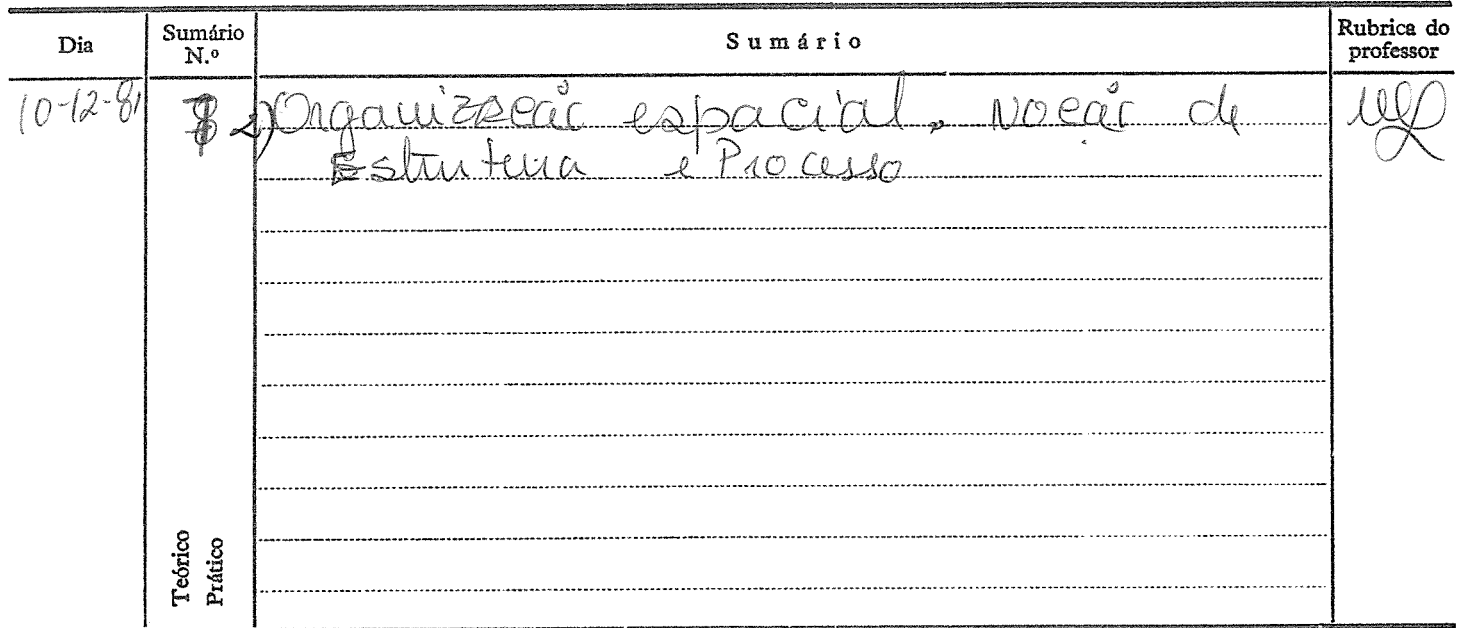 Dia
Sumário N.º
Sumário
Rubrica do professor
10-12-81
2) Organização espacial, Noção de
Estrutura e Processo
Teórico
Prático